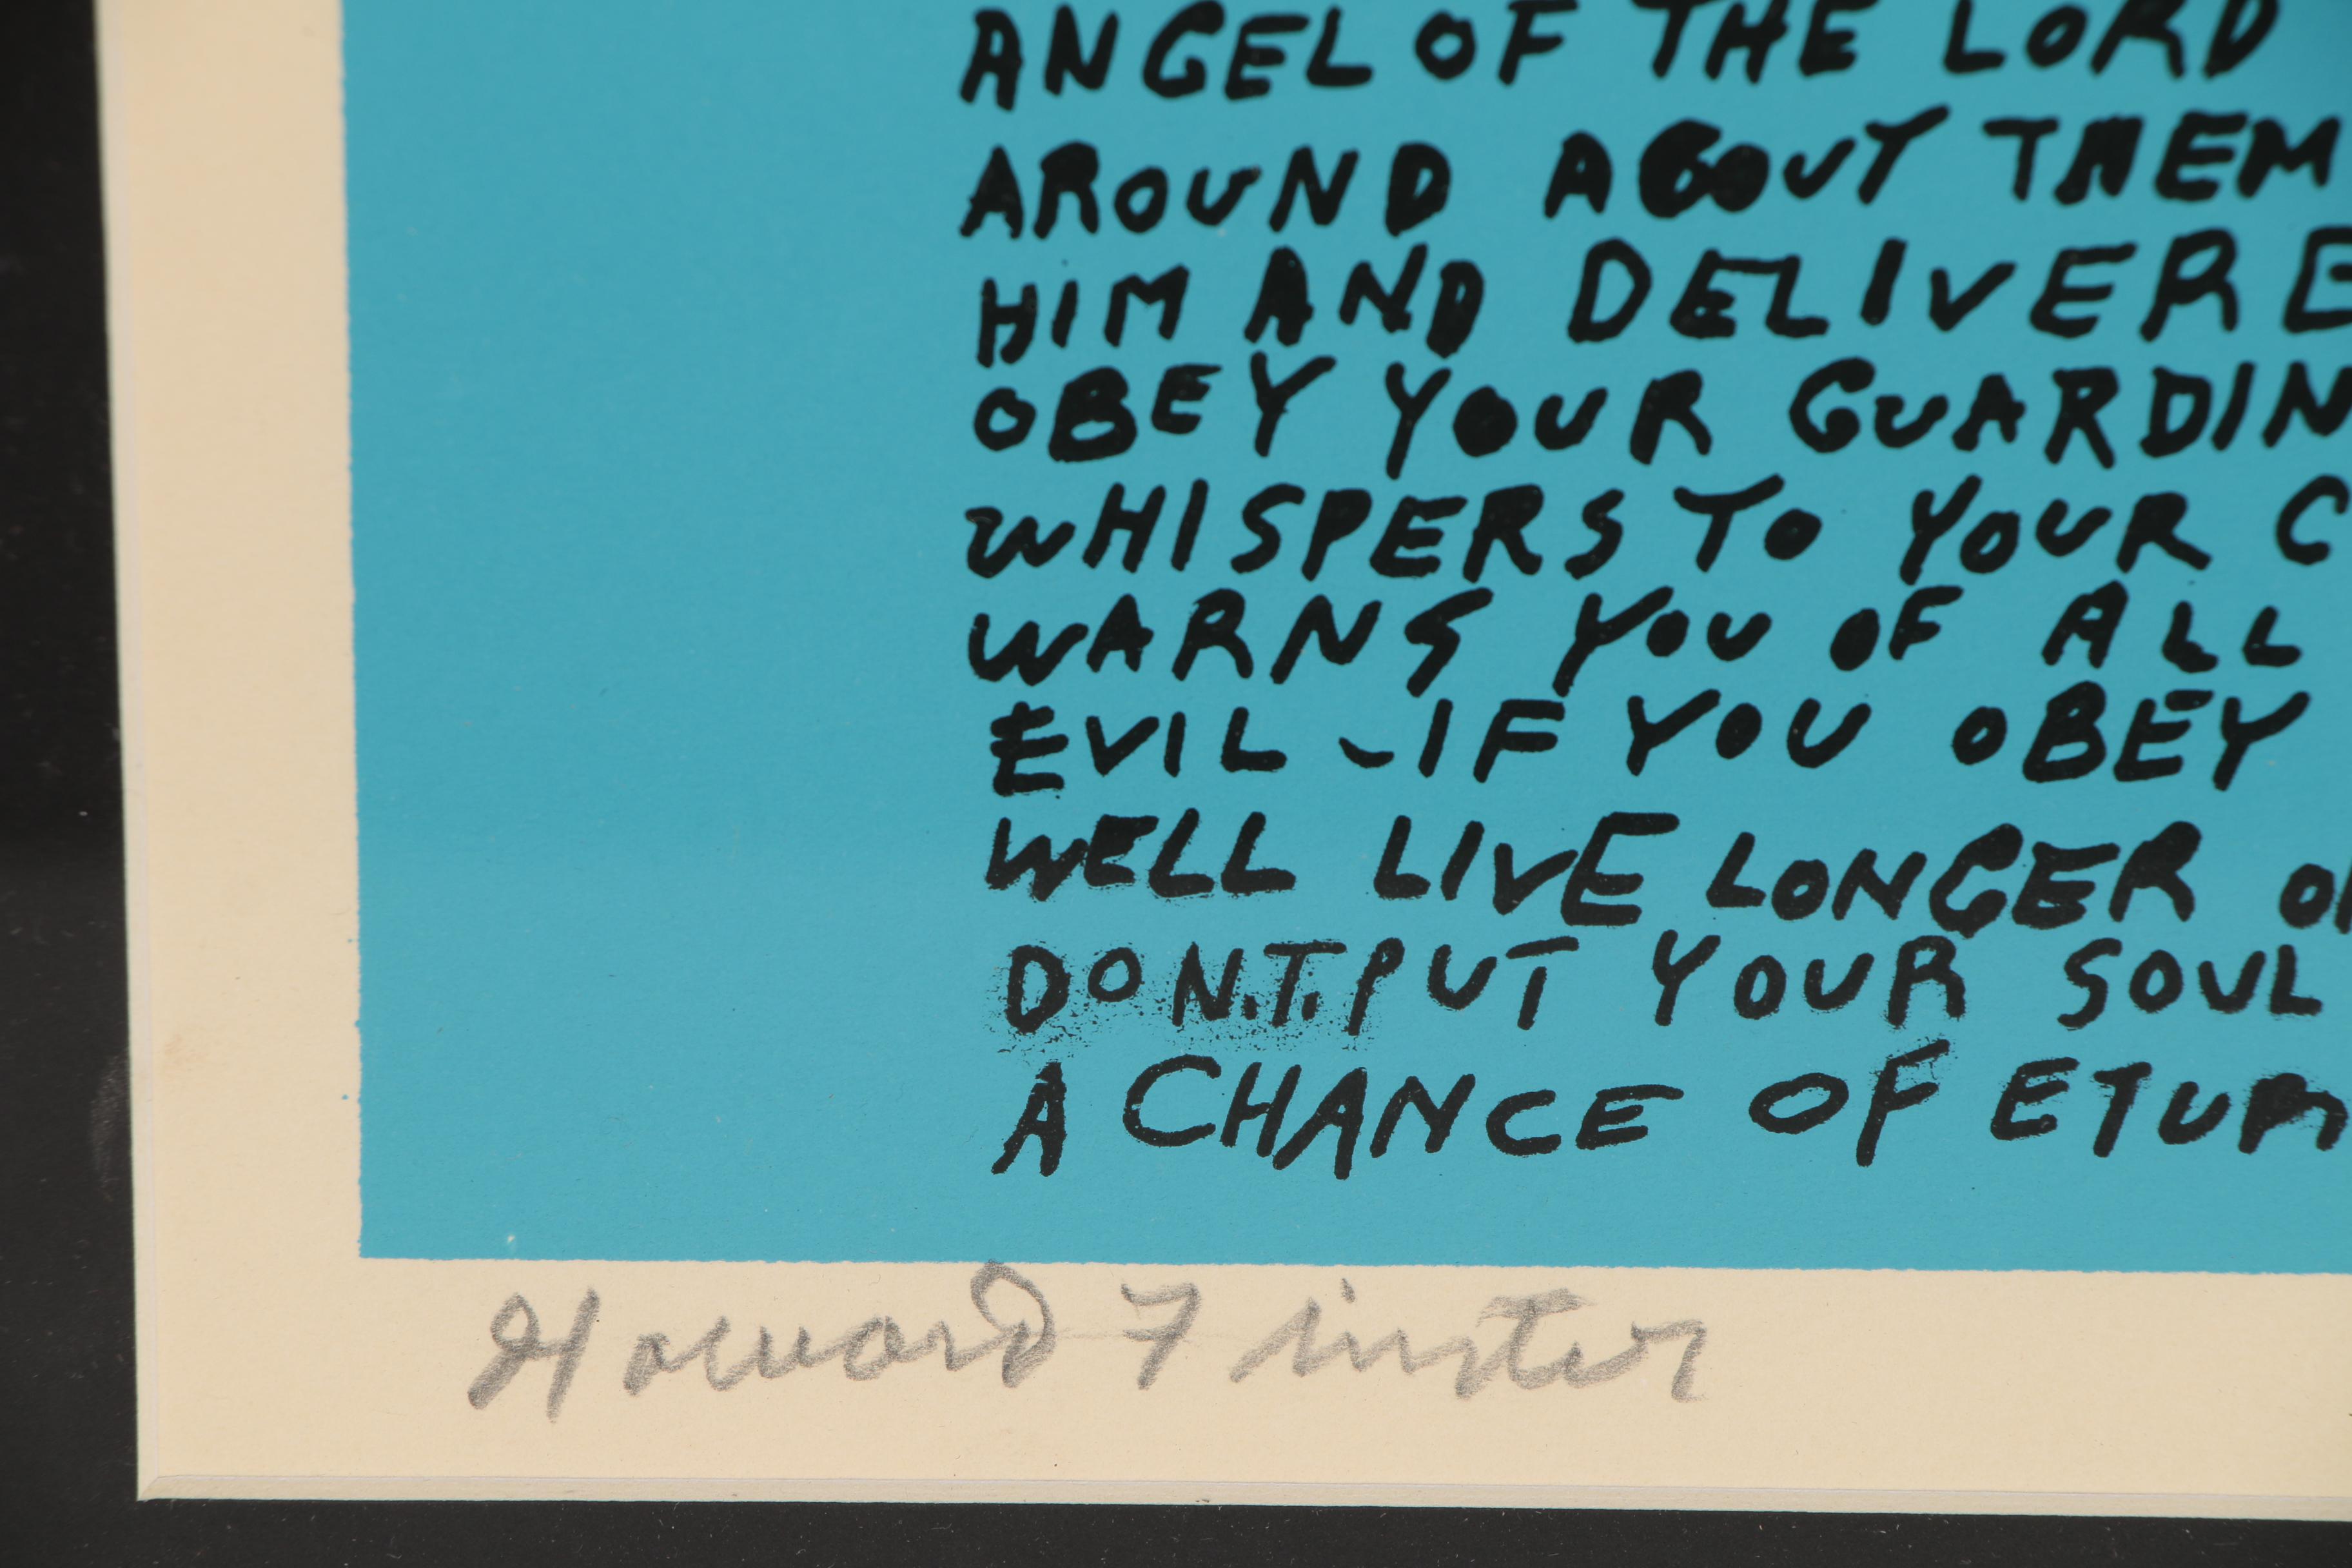 ANGEL OF THE LORD
AROUND ABOUT THEM
HIM AND DELIVER E
OBEY YOUR GUARDIN
WHISPERS TO YOUR C
WARNS YOU OF ALL
EVIL - IF YOU OBEY
WELL LIVE LONGER
DON.T. PUT YOUR SOUL
A CHANCE OF ETURN
Howard Finster